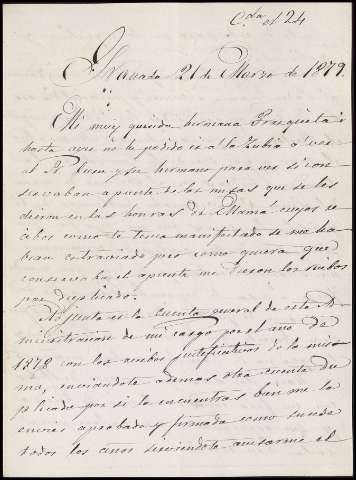 Cda al 24
Granada 21 de Marzo de 1879.
Mi muy querida hermana Frasquita:
hasta ayer no he podido ir á la Zubia á ver
al Sr. Cura y su hermano para ver si con-
servaban apunte de las misas que se les
dieron en las honras de Mamá cuyos re-
cibos como te tenia manifestado se me ha-
bian extraviado pero como quiera que
conservaba el apunte me dieron los recibos
por duplicado.
Adjunta es la cuenta general de esta Ad-
ministracion de mi cargo por el año de
1878 con los recibos justificativos de la mis-
ma, enviándote ademas otra cuenta du-
plicada por si la encuentras bien me la
envies aprobada y firmada como sucede
todos los años sirviéndote avisarme el